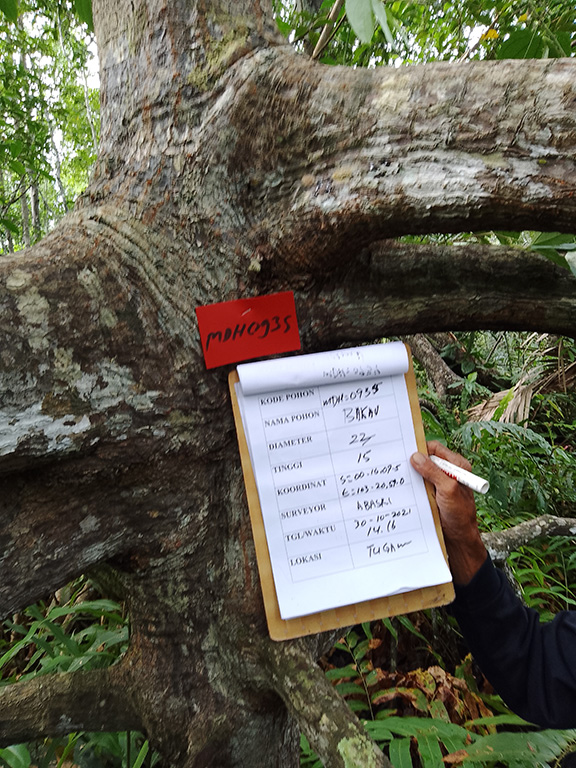 MDH0935
KODE POHON MDH-0935
NAMA POHON BAKAU
DIAMETER 22
TINGGI 15
KOORDINAT S=00-16.07.5
E=103-20.59.0
SURVEYOR ABASRI
TGL.WAKTU 30-10-2021
14.16
LOKASI TUGAU